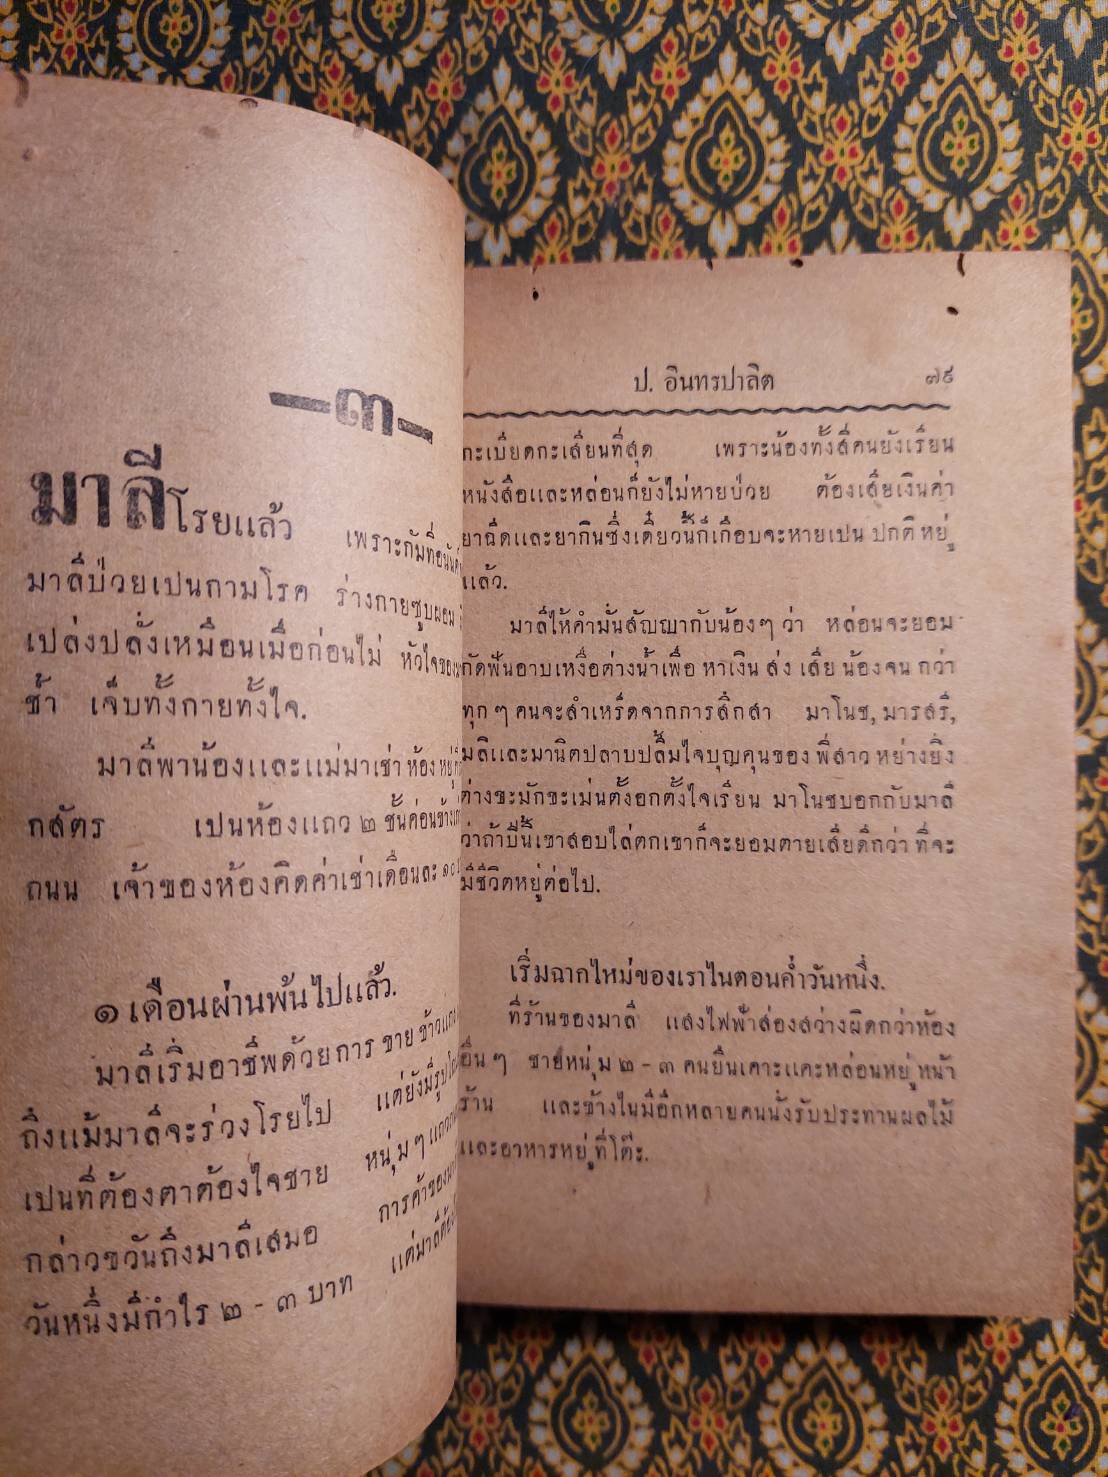 —๓—
มาลีโรยแล้ว เพราะกัมที่
มาลีป่วยเปนกามโรค ร่างกายซูบผอม
เปล่งปลั่งเหมือนเมื่อก่อนไม่ หัวใจของ
ช้ำ เจ็บทั้งกายทั้งใจ.
มาลีพาน้องและแม่มาเช่าห้องหยู่
กสัตร เปนห้องแถว ๒ ชั้นค่อนข้าง
ถนน เจ้าของห้องคิดค่าเช่าเดือนละ
๑ เดือนผ่านพ้นไปแล้ว.
มาลีเริ่มอาชีพด้วยการ ขาย ข้าวแกง
ถึงแม้มาลีจะร่วงโรยไป แต่ยังมีรูป
เปนที่ต้องตาต้องใจชาย หนุ่ม ๆ แถว
กล่าวขวันถึงมาลีเสมอ การค้าของ
วันหนึ่งมีกำไร ๒ - ๓ บาท แต่มาลีต้อง
ป. อินทรปาลิต ๗๙
กะเบียดกะเสียนที่สุด เพราะน้องทั้งสี่คนยังเรียน
หนังสือและหล่อนก็ยังไม่หายป่วย ต้องเสียเงินค่า
ยาฉีดและยากินซึ่งเดี๋ยวนี้ก็เกือบจะหายเปน ปกติ หยู่
แล้ว.
มาลีให้คำมั่นสัญญากับน้องๆ ว่า หล่อนจะยอม
กัดฟันอาบเหงื่อต่างน้ำเพื่อ หาเงิน ส่ง เสีย น้องจน กว่า
ทุก ๆ คนจะสำเหร็ดจากการสึกสา มาโนช, มารสรี,
มลิและมานิตปลาบปลื้มใจบุญคุนของ พี่สาว หย่างยิ่ง
ต่างขะมักขะเม่นตั้งอกตั้งใจเรียน มาโนชบอกกับมาลี
ว่าถ้าปีนี้เขาสอบไล่ตกเขาก็จะยอมตายเสียดีกว่า ที่จะ
มีชีวิตหยู่ต่อไป.
เริ่มฉากไหม่ของเราไนตอนค่ำวันหนึ่ง.
ที่ร้านของมาลี แสงไฟฟ้าส่องสว่างผิดกว่าห้อง
อื่น ๆ ชายหนุ่ม ๒ - ๓ คนยืนเคาะแคะหล่อนหยู่ หน้า
ร้าน และข้างไนมีอีกหลายคนนั่งรับประทานผลไม้
และอาหารหยู่ ที่โต๊ะ.